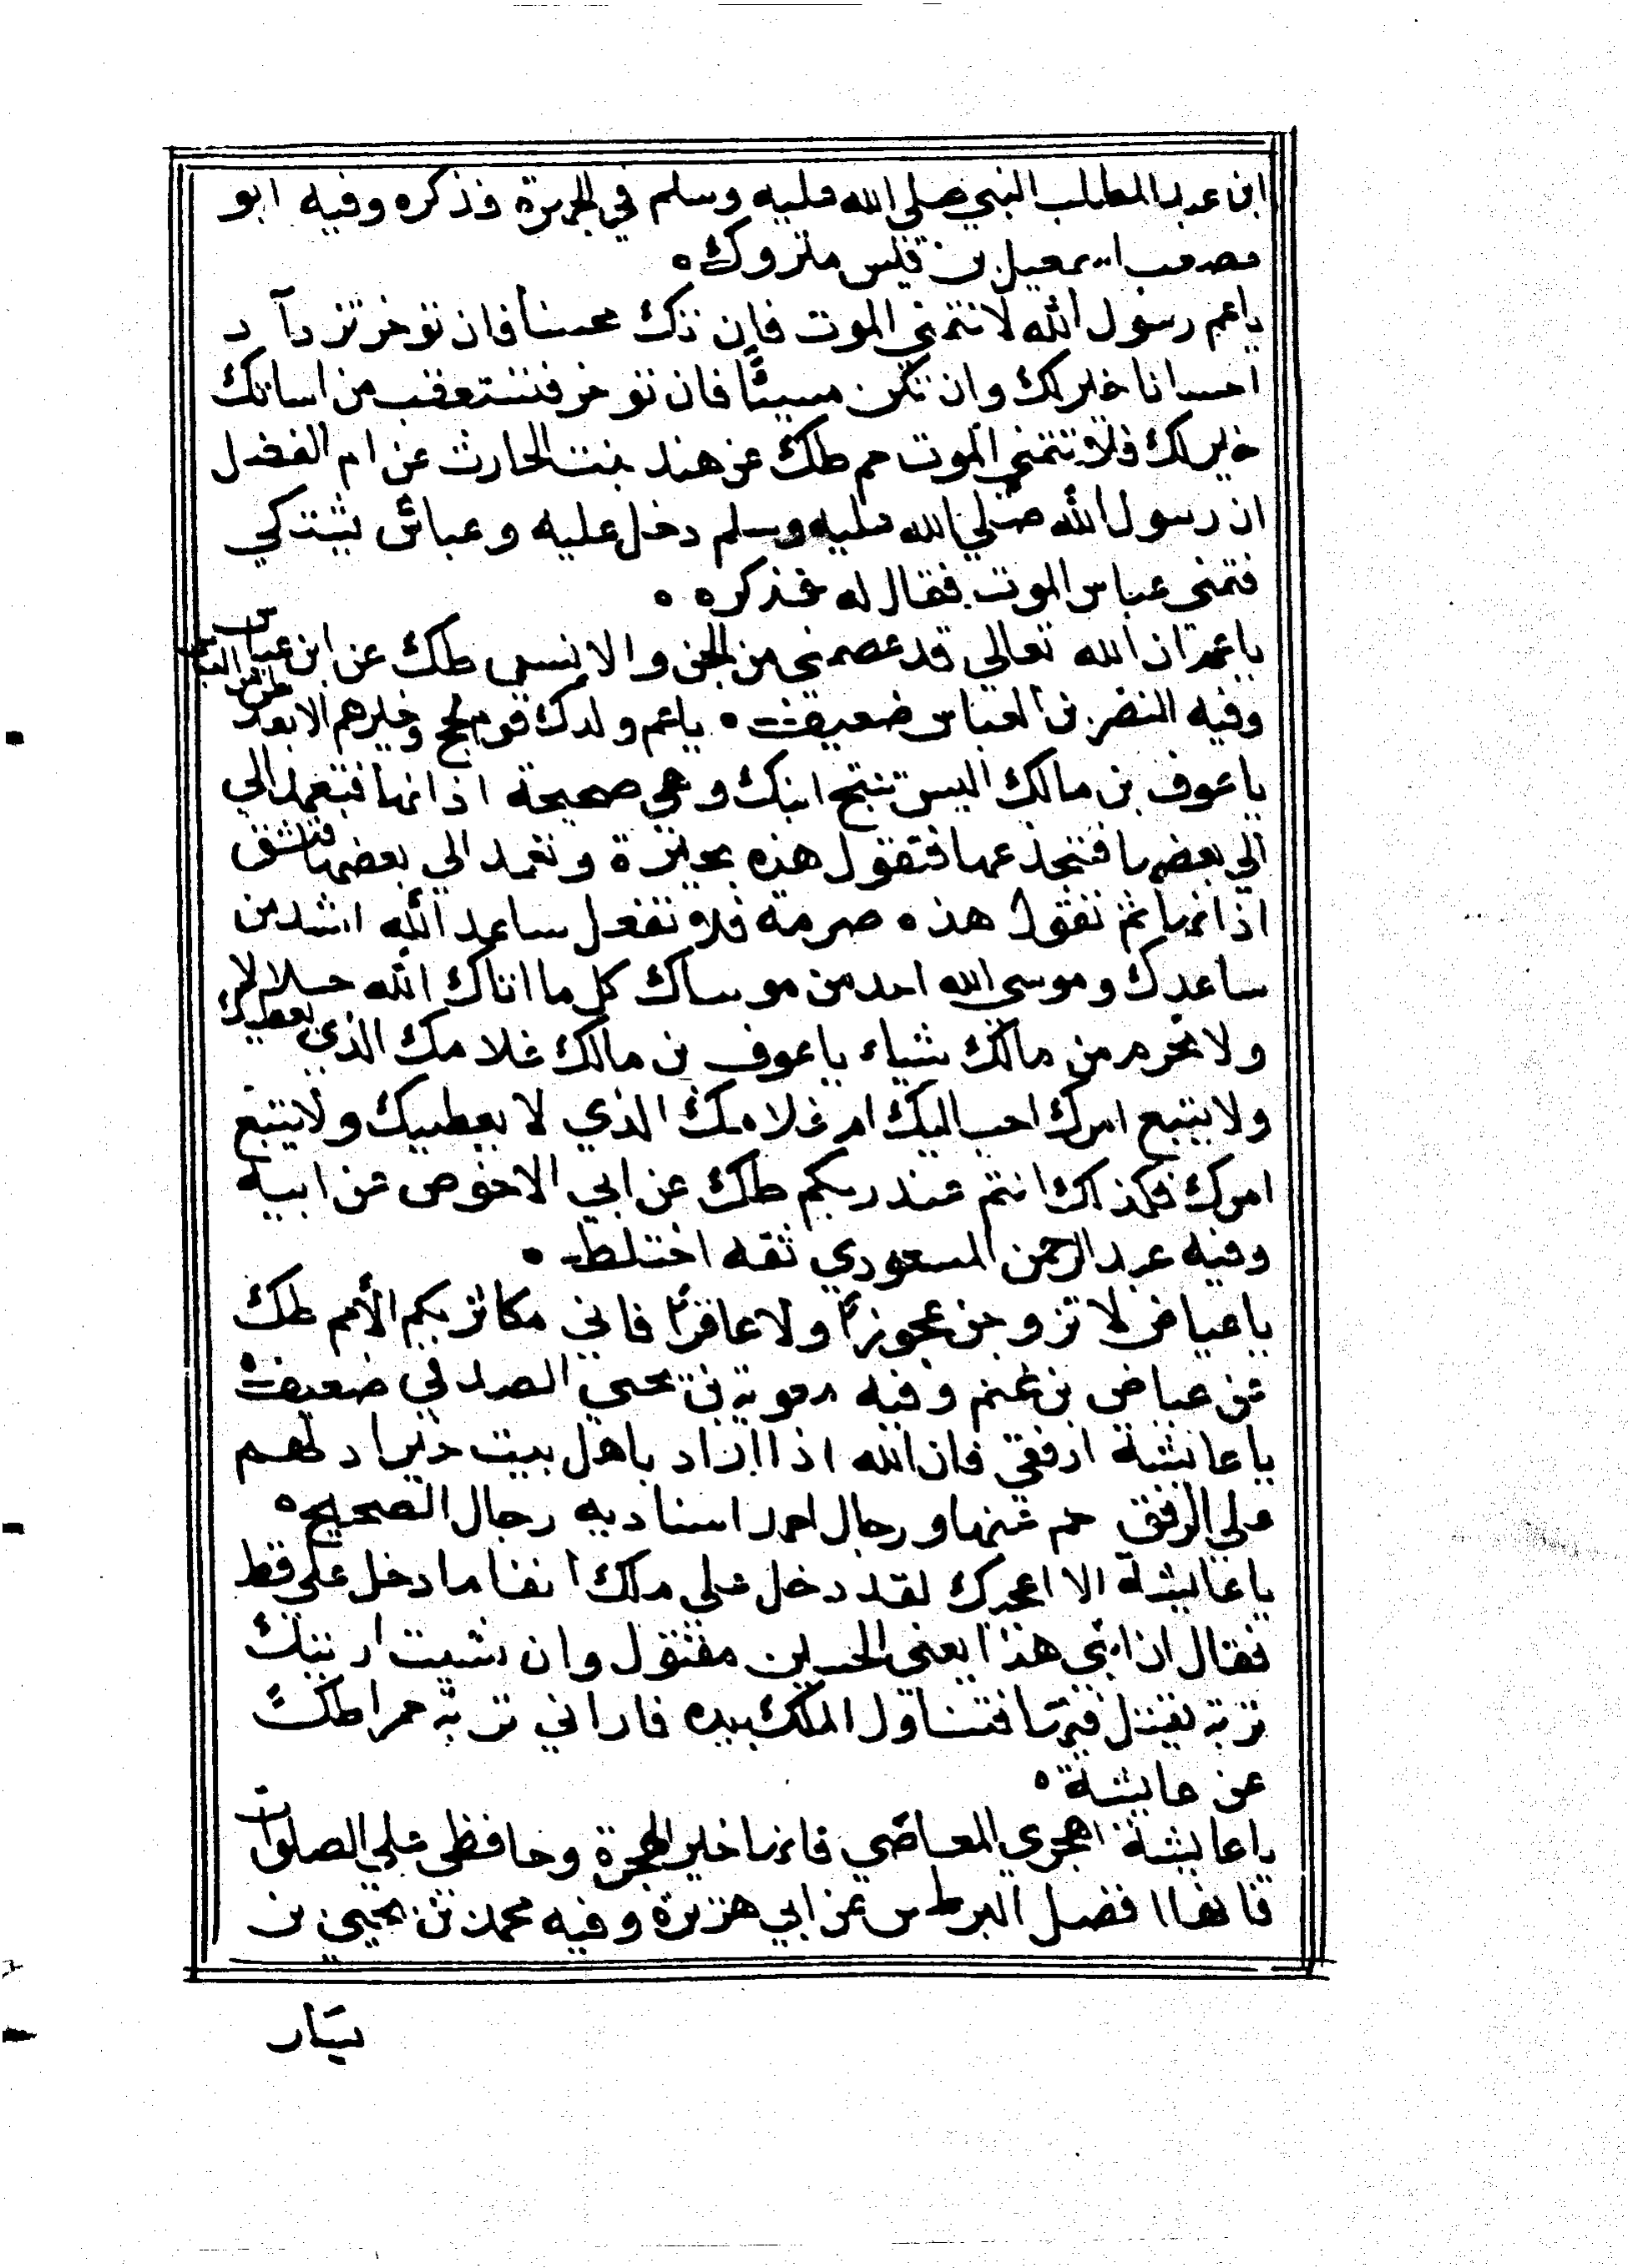 ابن عبد المطلب النبي صلي الله عليه وسلم في الهجرة فذكره وفيه ابو
مصعب اسمعيل بن قيس متروك ه
ياعم رسول الله لا تتمني الموت فان تك محسنا فان توخر تزداد
احسانا خير لك وان تكن مسيئا فان توخر فتستعقب من اساتك
خير لك فلا تتمني الموت حم طك عن هند بنت الحارث عن ام الفضل
ان رسول الله صلي الله عليه وسلم دخل عليه وعباس يشتكي
فتمني عباس الموت فقال له فذكره ه
ياعم ان الله تعالي قد عصمني من الجن والانس طك عن ابن عباس
وفيه النضر بن العباس ضعيف ه ياعم ولدك قوم لج وخيرهم الابعد
ياعوف بن مالك اليس تنتج ابلك وهي صحيحة اذانها فتعمد الي
الي بعضها فتجذعها فتقول هذه بحيرة وتعمد الي بعضها فتشق
اذانها ثم تقول هذه صرمة فلا تفعل ساعد الله اشد من
ساعدك وموسي الله احد من موساك كل ما اتاك الله حلال لك
ولا تحرم من مالك شياء ياعوف بن مالك غلامك الذي يعطيك
ولا يتبع امرك احب اليك ام غلامك الذي لا يعطيك ولا يتبع
امرك فكذاك انتم عند ربكم طك عن ابي الاحوص عن ابيه
وفيه عبد الرحمن المسعودي ثقه اختلط ه
ياعياض لا تزوجن عجوزا ولا عاقرا فاني مكاثر بكم الأمم طك
عن عياض بن غنم وفيه معوية بن يحيي الصدفي ضعيف ه
ياعائشة ارفقي فان الله اذا اراد باهل بيت خيرا دلهم
علي الرفق حم عنها ورجال احد اسناديه رجال الصحيح ه
ياعايشة الا اعجبك لقد دخل علي ملك انفا ما دخل علي قط
فقال ان ابني هذا يعني الحسين مقتول وان شيت اريتك
تربة يقتل فيها فتناول الملك بيده فاراني تربة حمرا طك
عن عايشة ه
ياعايشة اهجري المعاصي فانها خير الهجرة وحافظي علي الصلوات
فانها افضل البر طس عن ابي هريرة وفيه محمد بن يحيي بن
يسار